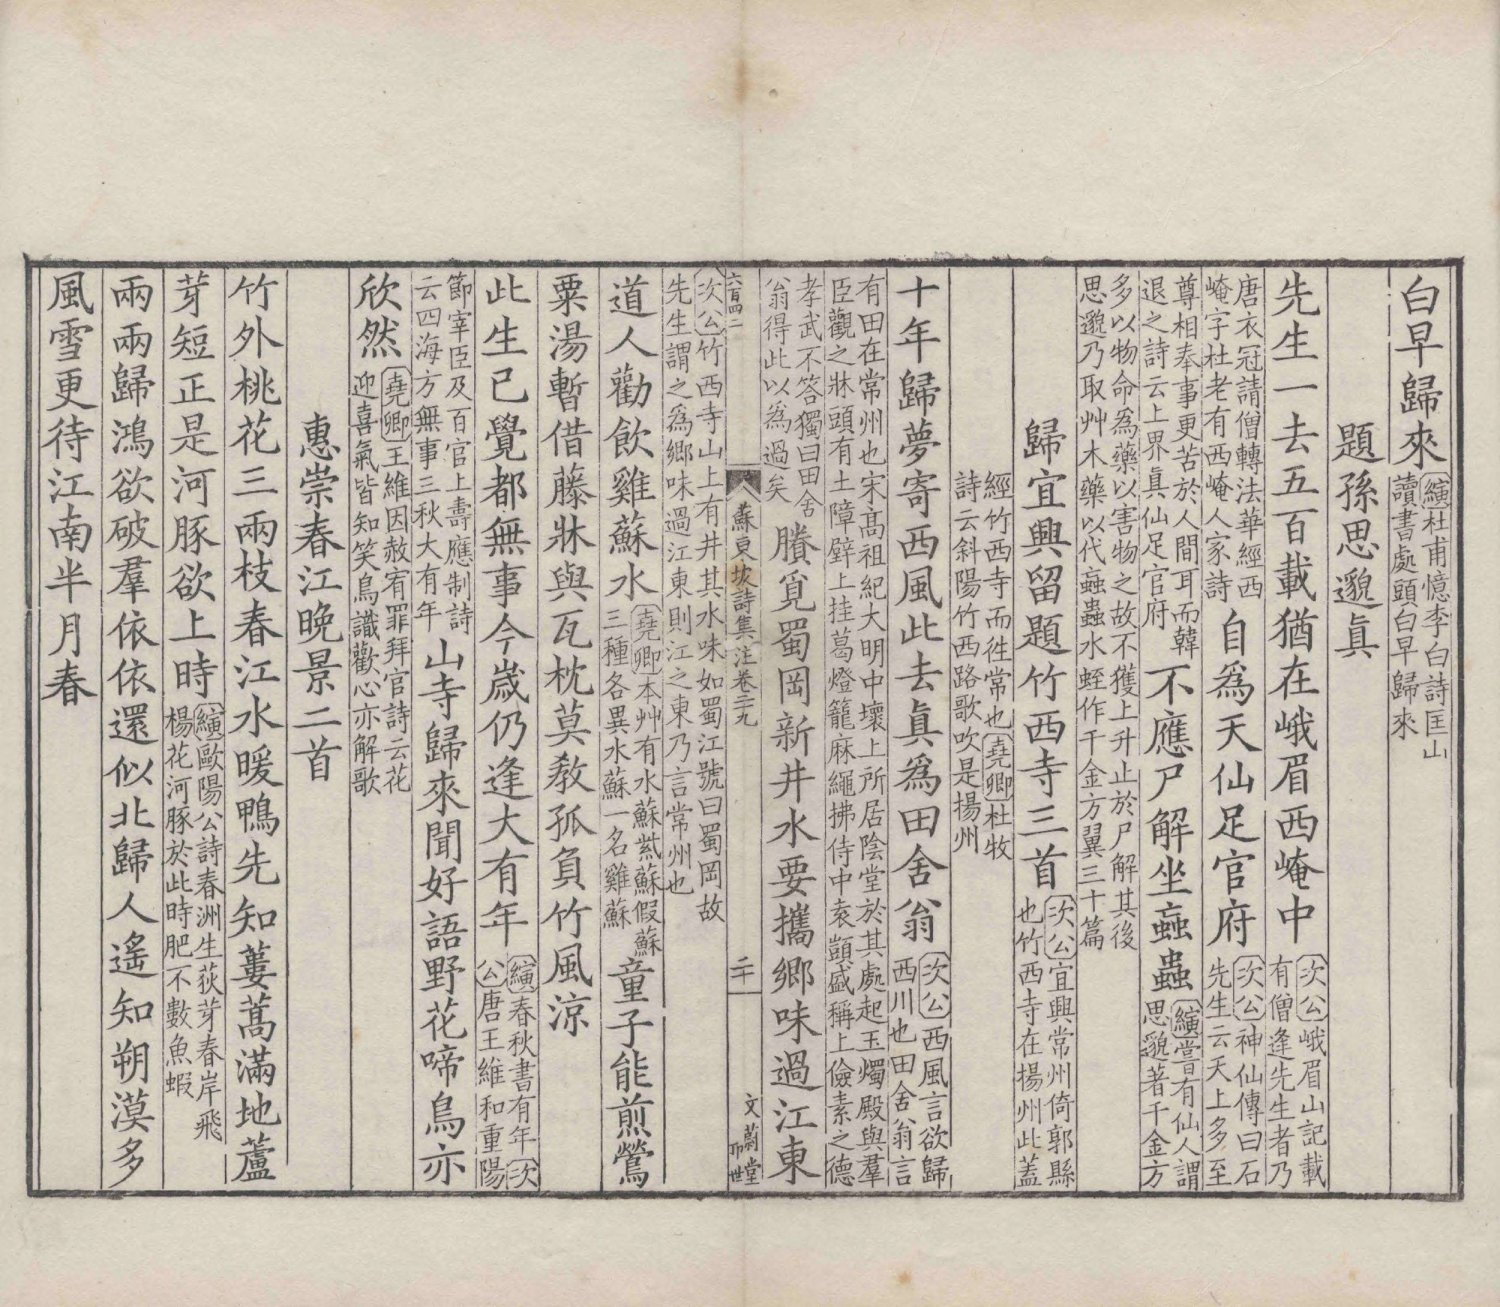 白早歸來縯杜甫憶李白詩匡山讀書處頭白早歸來
題孫思邈真
先生一去五百載猶在峨眉西崦中次公峨眉山記載有僧逢先生者乃
唐衣冠請僧轉法華經西崦字杜老有西崦人家詩自為天仙足官府次公神仙傳曰石先生云天上多至
尊相奉事更苦於人間耳而韓退之詩云上界真仙足官府不應尸解坐蝱蟲縯嘗有仙人謂思邈著千金方
多以物命為藥以害物之故不獲上升止於尸解其後思邈乃取艸木藥以代蝱蟲水蛭作千金方翼三十篇
歸宜興留題竹西寺三首次公宜興常州倚郭縣也竹西寺在揚州此蓋
經竹西寺而徃常也堯卿杜牧詩云斜陽竹西路歌吹是揚州
十年歸夢寄西風此去真為田舍翁次公西風言欲歸西川也田舍翁言
有田在常州也宋高祖紀大明中壞上所居陰堂於其處起玉燭殿與羣臣觀之牀頭有土障壁上挂葛燈籠麻繩拂侍中袁顗盛稱上儉素之德
孝武不答獨曰田舍翁得此以為過矣賸覓蜀岡新井水要攜鄉味過江東
六百四二
蘇東坡詩集注卷二十九
二十
文蔚堂
次公竹西寺山上有井其水味如蜀江號曰蜀岡故先生謂之為鄉味過江東則江之東乃言常州也
道人勸飲雞蘇水堯卿本艸有水蘇紫蘇假蘇三種各異水蘇一名雞蘇童子能煎鶯
粟湯暫借藤牀與瓦枕莫敎孤負竹風涼
此生已覺都無事今歲仍逢大有年縯春秋書有年次公唐王維和重陽
節宰臣及百官上壽應制詩云四海方無事三秋大有年山寺歸來聞好語野花啼鳥亦
欣然堯卿王維因赦宥罪拜官詩云花迎喜氣皆知笑鳥識歡心亦解歌
惠崇春江晚景二首
竹外桃花三兩枝春江水暖鴨先知蔞蒿滿地蘆
芽短正是河豚欲上時縯歐陽公詩春洲生荻芽春岸飛楊花河豚於此時肥不數魚蝦
兩兩歸鴻欲破羣依依還似北歸人遙知朔漠多
風雪更待江南半月春